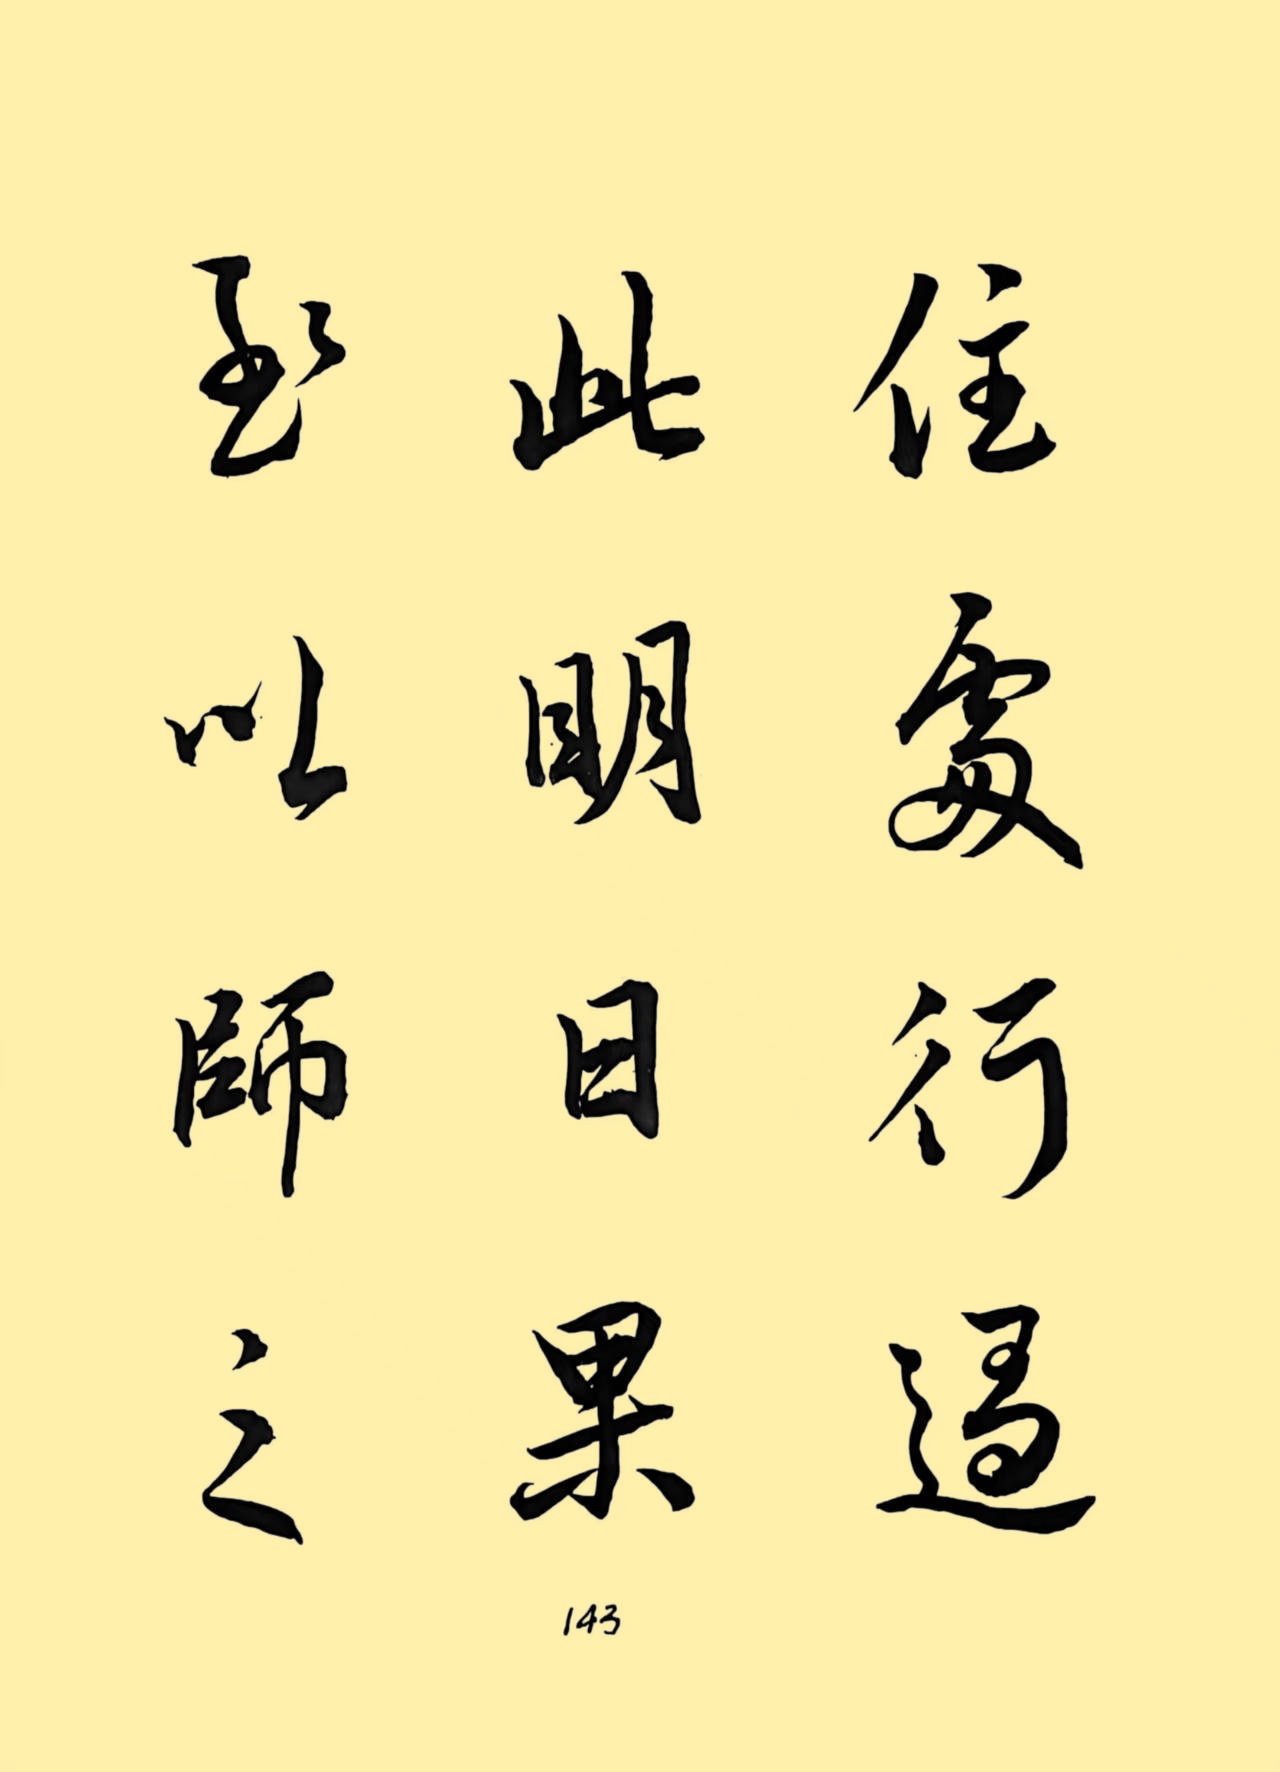 住處行過
此明日果
到以師之
143